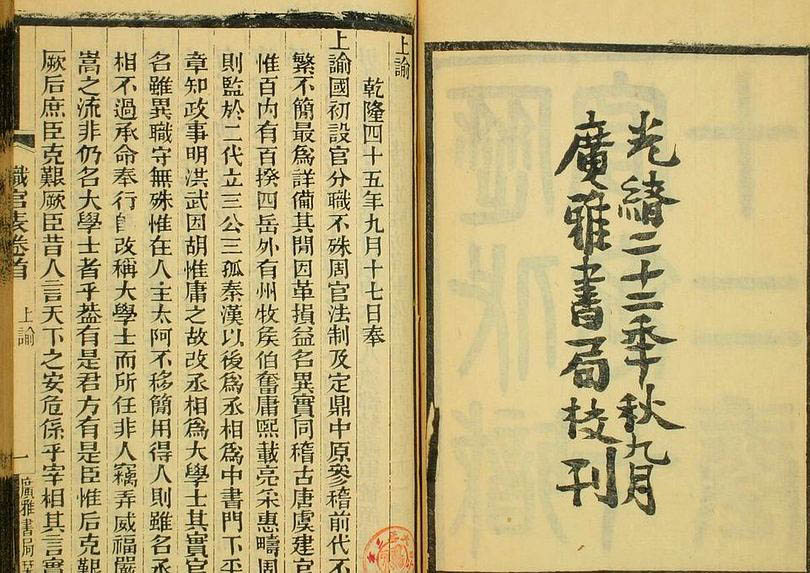 光緒二十二秊秋九月
廣雅書局校刊
上諭
乾隆四十五年九月十七日奉
上諭國初設官分職不殊周官法制及定鼎中原參稽前代不
繁不簡最爲詳備其閒因革損益名異實同稽古唐虞建官
惟百內有百揆四岳外有州牧侯伯奮庸熙載亮采惠疇周
則監於二代立三公三孤秦漢以後爲丞相爲中書門下平
章知政事明洪武因胡惟庸之故改丞相爲大學士其實官
名雖異職守無殊惟在人主太阿不移簡用得人則雖名丞
相不過承命奉行卽改稱大學士而所任非人竊弄威福嚴
嵩之流非仍名大學士者乎葢有是君方有是臣惟后克艱
厥后庶臣克艱厥臣昔人言天下之安危係乎宰相其言實
職官表卷首
上諭
一
廣雅書局栞